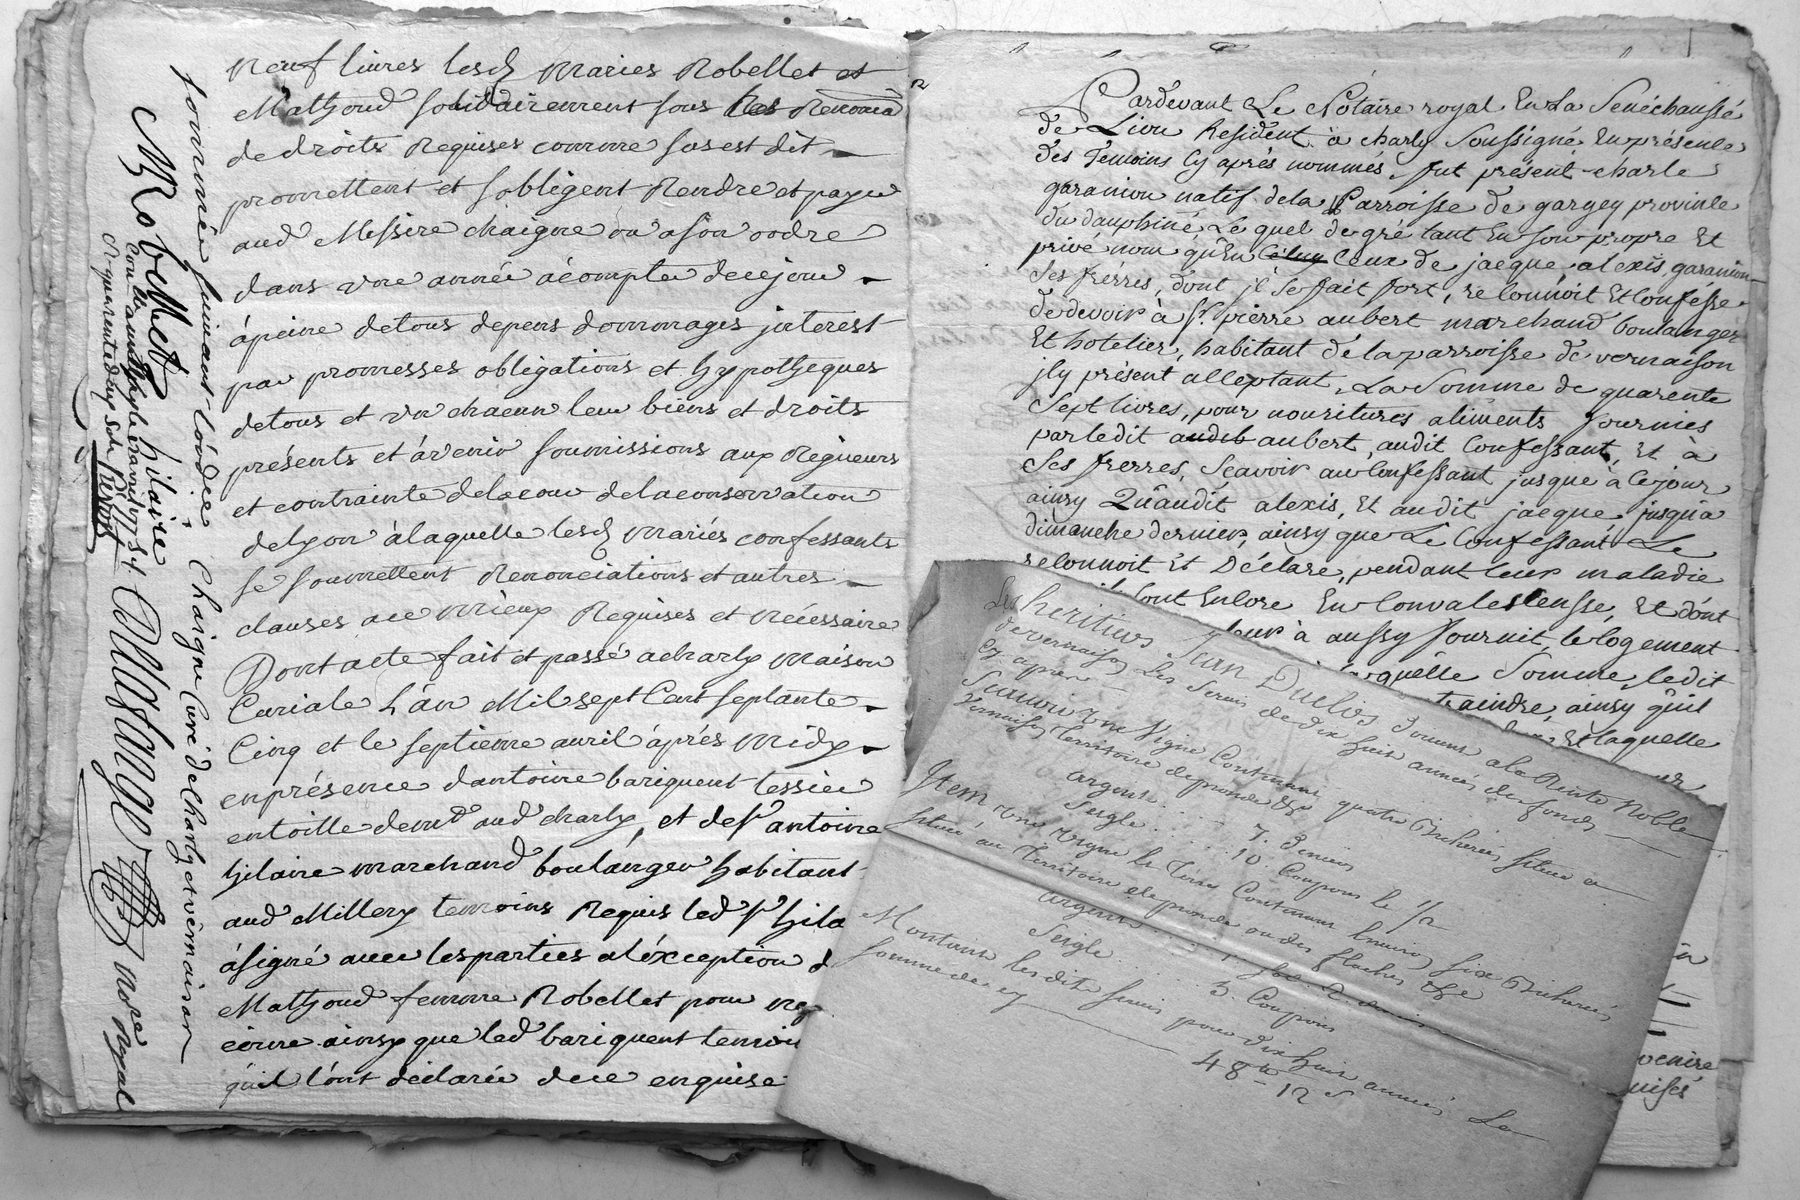 neuf livres lesd maries Robellet et
Mathoud solidairement sous les Renoncia
de droits Requises comme sus est dit
promettent et sobligent Rendre et payer
aud Messire chaigne ou a son ordre
dans une année àcompter decejour
àpeine detous depens dommages jnterest
par promesses obligations et hypotheques
detous et un chacun leur biens et droits
présents et àvenir soumissions aux Rigueurs
et contrainte delacour delaconservation
delyon àlaquelle lesd mariés confessants
se soumettent Renonciations et autres
clauses ace mieux Requises et nécessaire
Dont acte fait et passé acharly maison
Curiale L'àn Mil sept Cent septante
Cinq et le septieme avril àprés midy
enprésence dantoine bariquent tessier
entoille demt aud charly, et de sr antoine
hilaire marchand boulanger habitant
aud Millery temoins Requis led sr hila
àsigné avec lesparties alèxception d
Mathoud femme Robellet pour
écrire ainsy que led bariquent temoin
quil l'ont déclarée dece enquise
sommée suivant lórdce Chaigne Curé de charly et vernaison
MRobellet hilaire
Cotte
notre Royal
Pardevant Le Notaire royal En La Senéchaussé
de Lion Resident à charly Soussigné En présence
des Temoins Cy aprés nommés, fut présent charle
garanion natif dela Parroisse de gargey province
du dauphiné, Lequel de gré tant En son propre Et
privé nom qu'En celuy Ceux de jacque, alexis, garanion
Ses frerres, dont jl Se fait fort, reConnoit Et Confésse
de devoir à Sr. pierre aubert marchand boulanger
Et hotelier, habitant de la parroisse de vernaison
jly présent acCeptant, La Somme de quarente
Sept livres, pour nouritures aliments fournies
par ledit audit aubert, audit Confessant, Et à
Ses frerres, Sçavoir au Confessant jusque à Cejour
ainsy Quàudit alexis, Et audit jacque jusqua
dimanche dernier, ainsy que Le Confessant Le
reConnoit Et Déclare, pendant leur maladie
Sont EnCore En Convalessense, Et dónt
leur à aussy fournit le logement
laquelle Somme, ledit
traindre, ainsy quil
Et laquelle
venire
uisés
Les heritiers Jean Duclos Doivent ala Rente Noble
de vernaison Les Servis de dix huit années du fonds
Cy apres
Scavoir une Vigne Contenant quatre Bicherées située a
Vernaison Territoire de pronde &c
argent . . . 7. Deniers
Seigle . . . 10. Coupons le 1/2
Item une vigne & Terre Contenant Environ six Bicherées
située au Territoire de pronde ou des floches &c
argent
Seigle . . . 5. Coupons
Montant lesdits servis pour dix huit années La
somme de cy
48 tt - 12 s